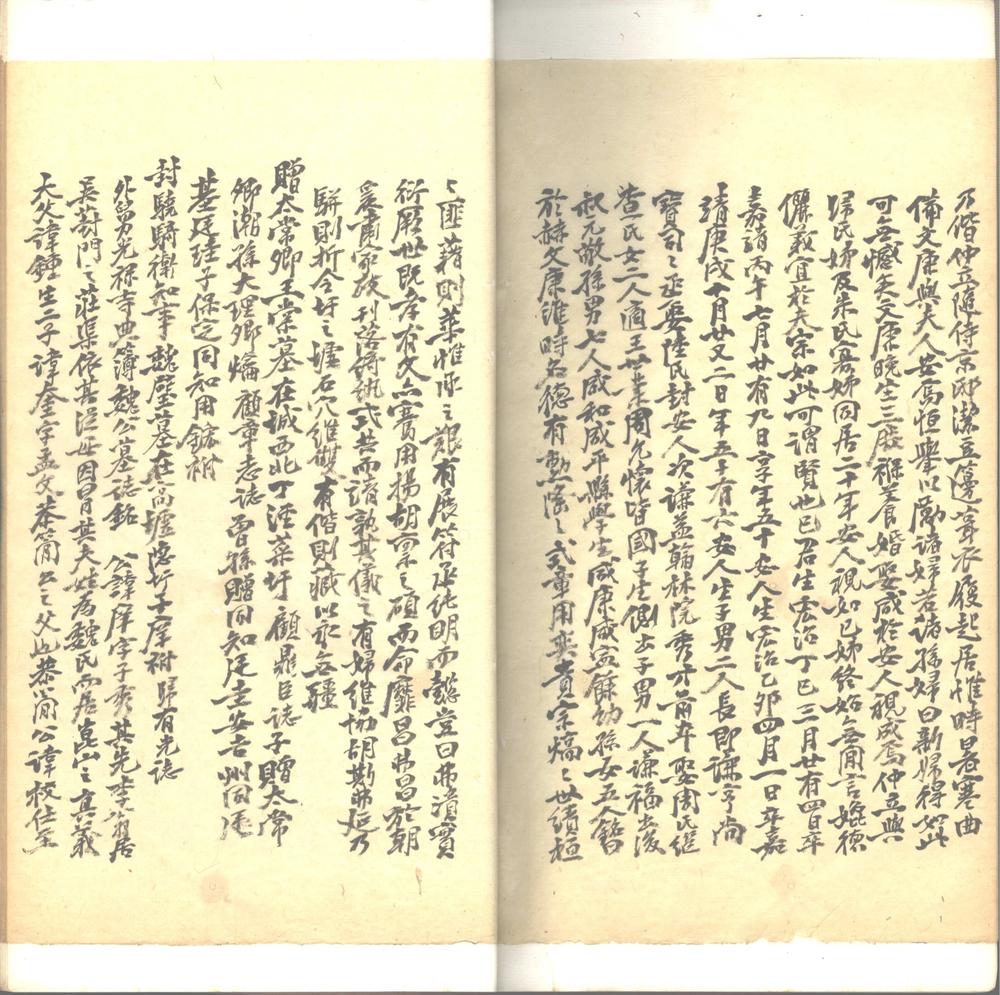 乃偕仲立隨侍京邸潔豆籩寧衣履起居惟時暑寒曲
備文康與夫人安焉恒舉以勵諸婦若諸孫婦曰新婦得如此
可無憾矣文康晚生三股襁養食婚娶咸於安人視成焉仲立與
歸氏姊及朱氏寡姊同居二十年安人視如己姊終始無間言媲德
儷義宜於夫宗如此可謂賢也已君生宏治丁巳三月廿有四日卒
嘉靖丙午七月廿有九日享年五十安人生宏治乙卯四月一日卒嘉
靖庚戌十月廿又二日年五十有六安人生子男二人長即謙亨尚
寶司之丞娶陸氏封安人次謙益翰林院秀才前卒娶周氏繼
查氏女二人適王世業周允懷皆國子生側出子男一人謙福出後
叔允敵孫男七人咸和咸平縣學生咸康咸寧餘幼孫女五人銘曰
於赫文康維時名德有勳隆之式彙用奕貴宗熇之世績桓
之匪藉則業惟承之艱有展符丞純明而懿豈曰弗瀆實
衍厥世既孝有文亦賚用揚胡稟之碩而命靡昌弗昌於朝
爰肅家政刊落綺紈式共而諸孰其儀之有婦維協胡斯弗延乃
駢則折今圩之墟石穴維雙有偕則臧以永無疆
贈太常卿王棠墓在城西北丁涇菜圩 顧鼎臣誌子贈太常
卿潮孫大理卿燆 顧章志誌 曾孫贈同知廷圭安吉州同廷
基廷珪子保定同知用鋐祔
封驍騎衛知事 魏璧墓在高墟隱圩子庠祔 歸有光誌
外舅光祿寺典簿魏公墓誌銘 公諱庠字子秀其先李翁居
吳葑門之莊渠依其從母因冒其夫姓為魏氏而居崑山之真義
大父諱鍾生二子諱奎字孟文恭簡公之父也恭簡公諱校仕至